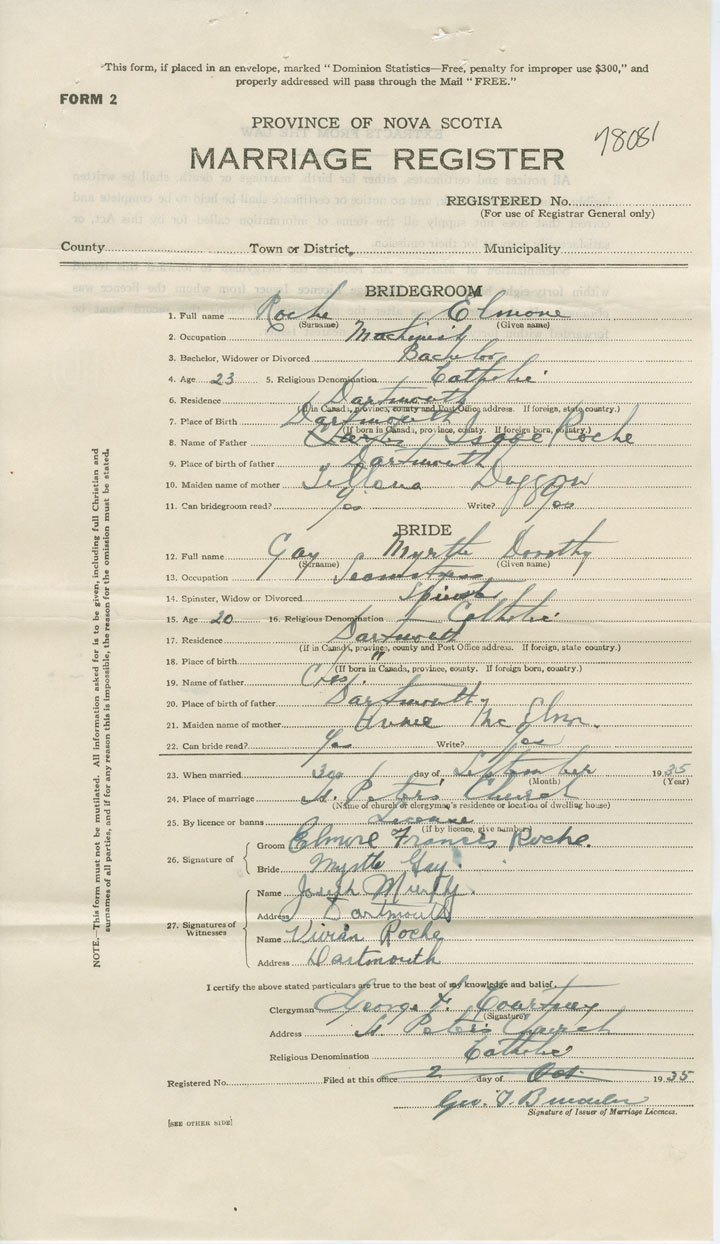 "This form, if placed in an envelope, marked "Dominion Statistics—Free, penalty for improper use $300," and
properly addressed will pass through the Mail "FREE."
FORM 2
PROVINCE OF NOVA SCOTIA
78081
MARRIAGE REGISTER
REGISTERED No.
(For use of Registrar General only)
County Town or District Municipality
BRIDEGROOM
1. Full name Roche Elmore
(Surname) (Given name)
2. Occupation Machinist
3. Bachelor, Widower or Divorced Bachelor
4. Age 23 5. Religious Denomination Catholic
6. Residence Dartmouth
(If in Canada, province, county and Post Office address. If foreign, state country.)
7. Place of Birth Dartmouth
(If born in Canada, province, county. If foreign born, country.)
8. Name of Father Isaac Roche
9. Place of birth of father Dartmouth
10. Maiden name of mother Duggan
11. Can bridegroom read? Yes Write? Yes
BRIDE
12. Full name Gay Myrtle Dorothy
(Surname) (Given name)
13. Occupation Seamstress
14. Spinster, Widow or Divorced Spinster
15. Age 20 16. Religious Denomination Catholic
17. Residence Dartmouth
(If in Canada, province, county and Post Office address. If foreign, state country.)
18. Place of birth "
(If born in Canada, province, county. If foreign born, country.)
19. Name of father
20. Place of birth of father Dartmouth
21. Maiden name of mother Annie
22. Can bride read? Yes Write? Yes
23. When married 30 day of September 1935
(Month) (Year)
24. Place of marriage St. Peters Church
(Name of church or clergyman's residence or location of dwelling house)
25. By licence or banns License
(If by licence, give number)
26. Signature of Groom Elmore Francis Roche.
Bride Myrtle Gay.
27. Signatures of Witnesses Name Joseph Murphy.
Address Dartmouth
Name Vivian Roche
Address Dartmouth
I certify the above stated particulars are true to the best of my knowledge and belief.
Clergyman George F. Courtney
(Signature)
Address St. Peter's Church
Religious Denomination Catholic
Registered No. Filed at this office 2 day of Oct 1935
Geo. T.
Signature of Issuer of Marriage Licences.
[SEE OTHER SIDE]
NOTE.—This form must not be mutilated. All information asked for is to be given, including full Christian and
surnames of all parties, and if for any reason this is impossible, the reason for the omission must be stated.